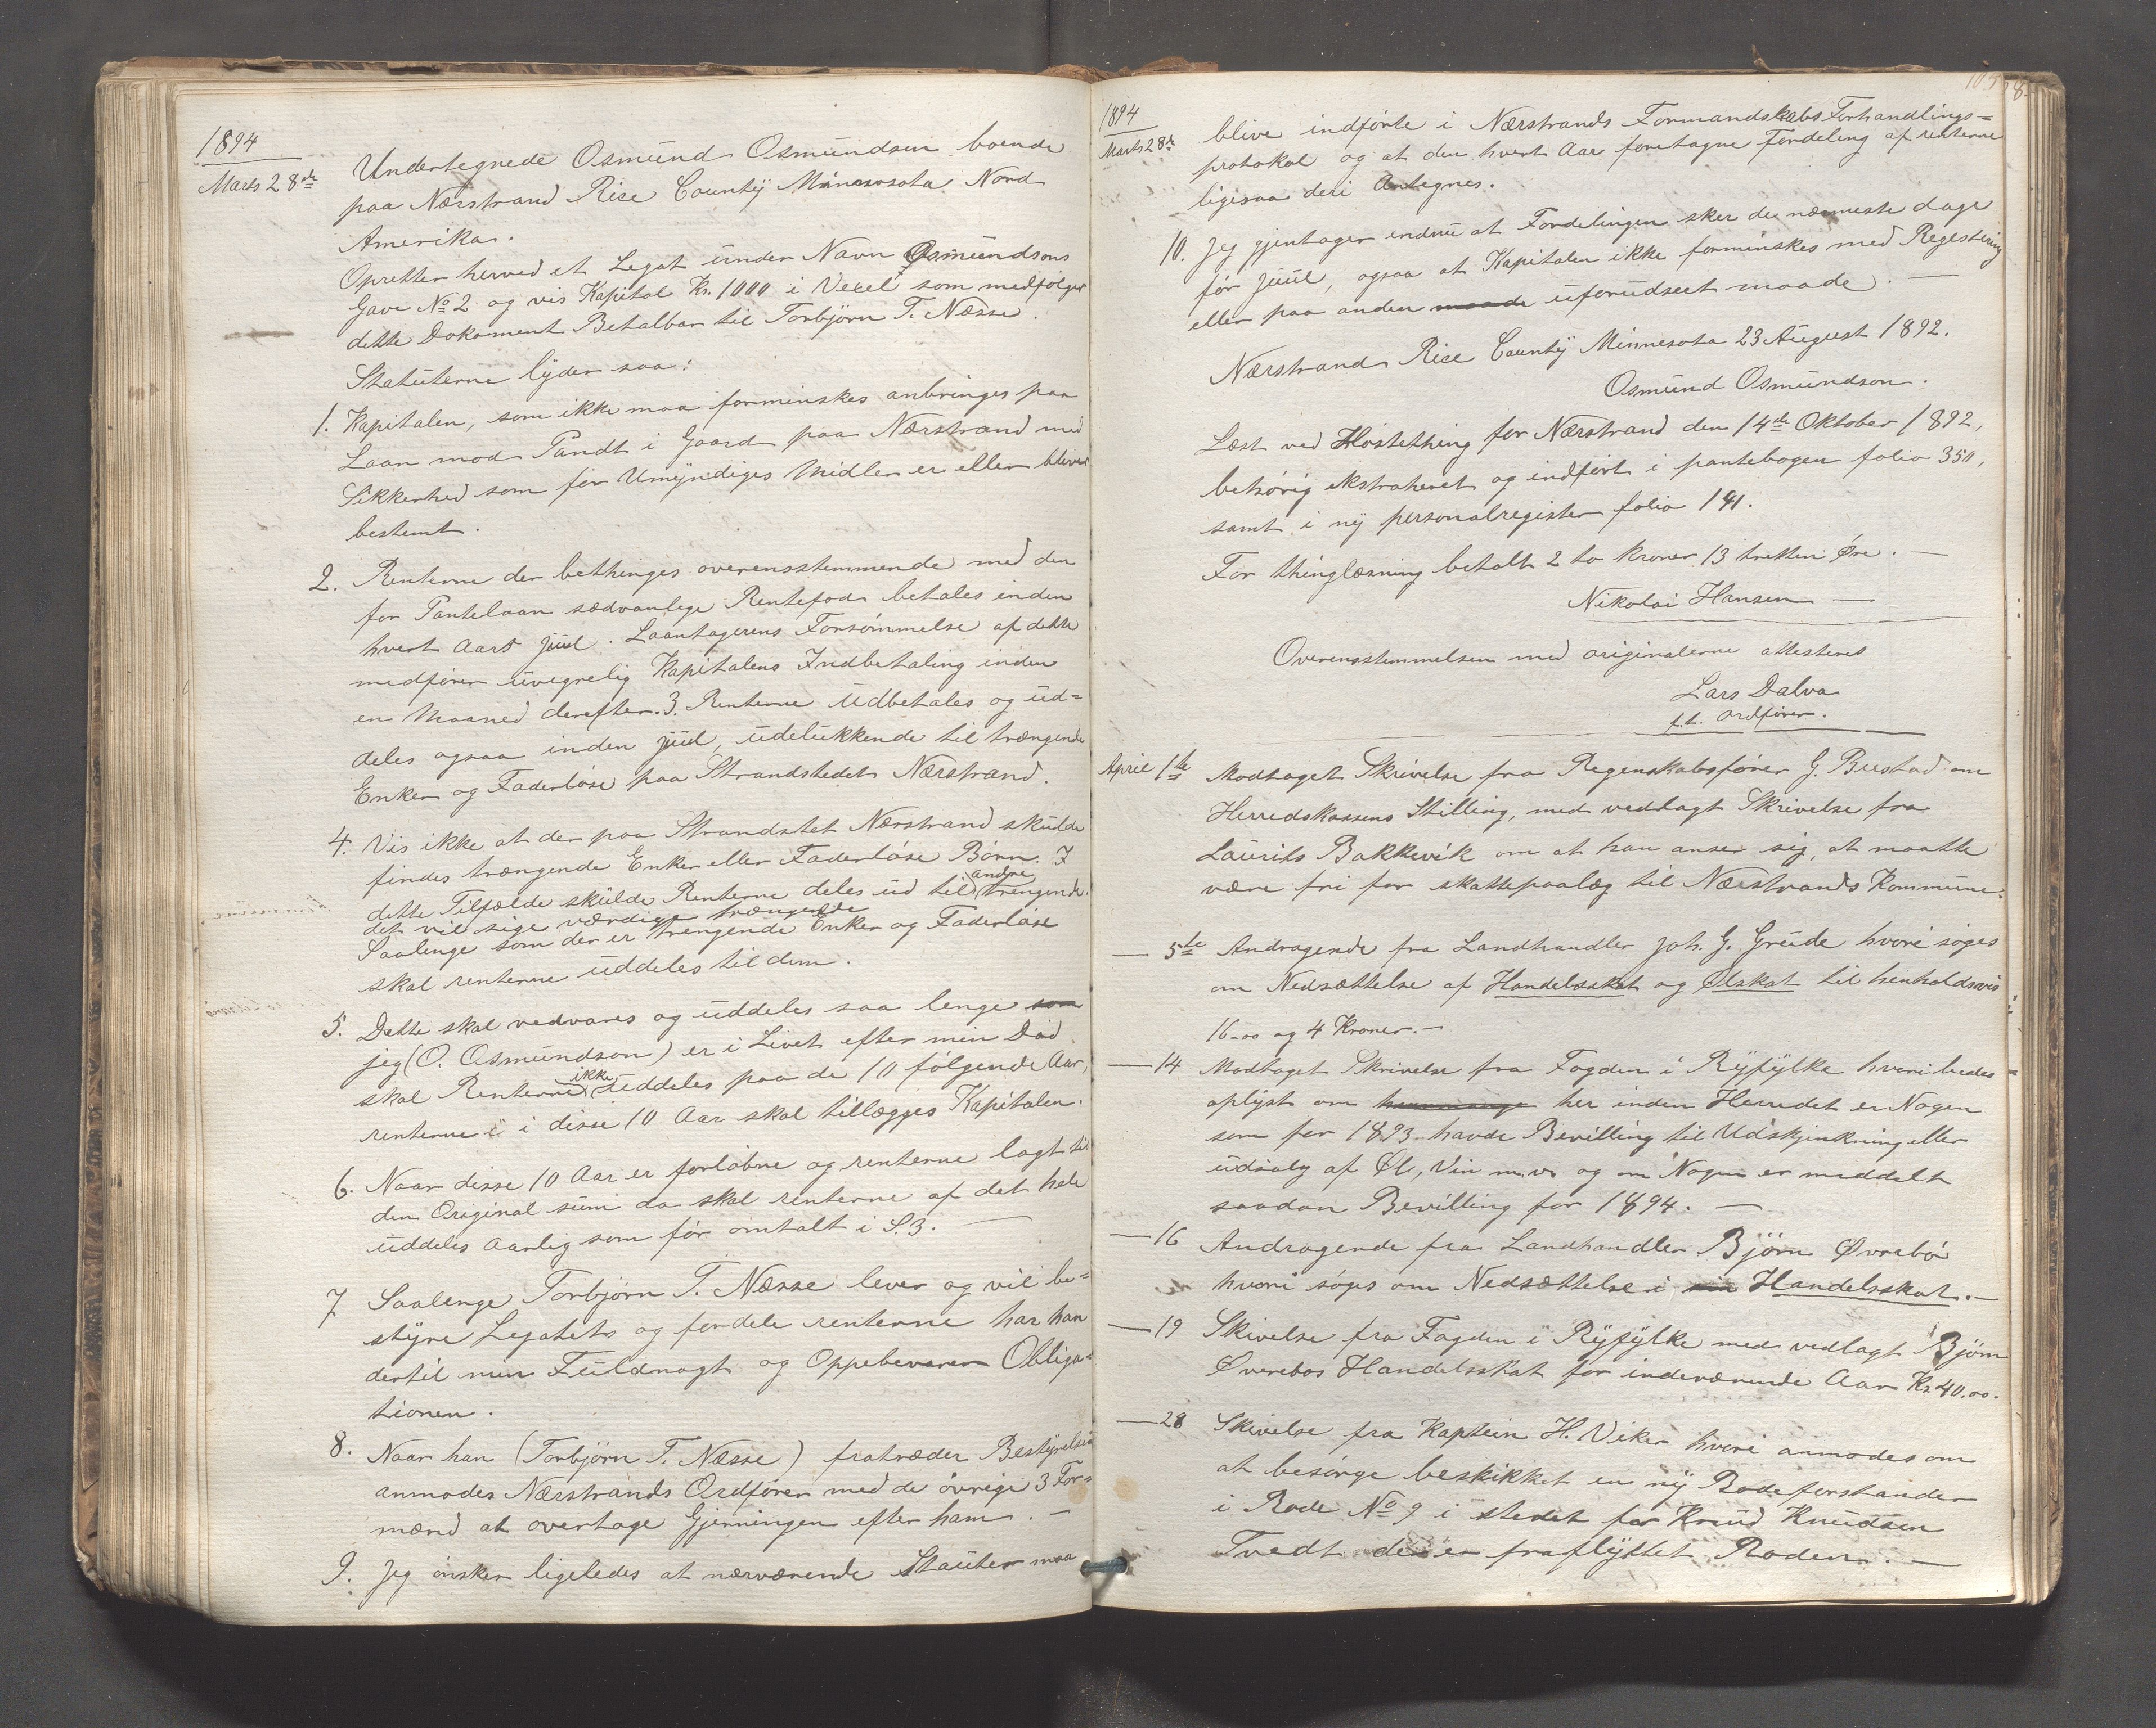 1894
Marts 28de
Undertegnede Osmund Osmundsen boende
paa Nærstrand Rice County Minnesota Nord
Amerika.
Opretter herved et Legat under Navn Osmundsons
Gave No 2 og vis Kapital Kr. 1000 i Vexel som medfølger
dette Dokument Betalbar til Torbjørn T. Næsse.
Statuterne lyder saa:
1. Kapitalen, som ikke maa forminskes anbringes paa
Laan mod Pandt i Gaard paa Nærstrand med
Sikkerhed som for Umyndiges Midler er eller bliver
bestemt.
2. Renterne der bethinges overensstemmende med den
for Pantelaan sædvanlige Rentefod betales inden
hvert Aars juul. Laantagerens Forsømmelse af dette
medfører uvegrelig Kapitalens Indbetaling inden
en Maaned derefter. 3. Renterne Udbetales og ud=
deles ogsaa inden juul, udelukkende til trængende
Enker og Faderløse paa Strandstedet Nærstrand.
4. Vis ikke at der paa Strandstet Nærstrand skulde
findes trængende Enker eller Faderløse Børn. I
dette Tilfælde skulde Renterne deles ud til andre trengende.
det vil sige værdige trængende
Saalenge som der er trengende Enker og Faderløse
skal renterne uddeles til dem.
5. Dette skal vedvares og uddeles saa lenge som
jeg (O. Osmundson) er i Livet efter min Død
skal Renterne ikke uddeles paa de 10 følgende Aar,
renterne i disse 10 Aar skal tillægges Kapitalen.
6. Naar disse 10 Aar er forløbne og renterne lagt til
den Original sum da skal renterne af det hele
uddeles aarlig som før omtalt i S.3. —
7 Saalenge Torbjørn T. Næsse lever og vil be=
styre Legatet og fordele renterne har han
dertil min Fuldmagt og Oppebevarer Obliga=
tionen.
8. Naar han (Torbjørn T. Næsse) fratræder Bestyrelsen
anmodes Nærstrands Ordfører med de øvrige 3 For=
mænd at overtage Gjerningen efter ham. —
9. Jeg ønsker ligeledes at nærværende Stauter maa
1894
Marts 28de
blive indførte i Nærstrands Formandskabs Forhandlings=
protokol og at den hvert Aar foretagne Fordeling af renterne
ligesaa deri Antegnes.
10. Jeg gjentager endnu at Fordelingen sker de nærmeste dage
før juul, ogsaa at Kapitalen ikke forminskes med Regestering
eller paa anden maade uforudseet maade. —
Nærstrand Rice County Minnesota 23 August 1892.
Osmund Osmundson.
Læst ved Høstething for Nærstrand den 14de Oktober 1892,
behørig ekstraheret og indført i pantebogen folio 350,
samt i ny personalregister folio 141.
For thinglæsning betalt 2 to kroner 13 tretten Øre. —
Nikolai Hansen —
Overensstemmelsen med originalerne attesteres
Lars Dalva
f.t. ordfører.
April 1te Modtaget Skrivelse fra Regenskabsfører G. Bustad om
Herredskassens Stilling, med vedlagt Skrivelse fra
Laurits Bakkevik om at han anser sig, at maatte
være fri for skattepaalæg til Nærstrands Kommune.
— 5te Andragende fra Landhandler Joh. G. Grude hvori søges
om Nedsættelse af Handelsskat og Ølskat til henholdsvis
16-00 og 4 Kroner. —
— 14 Modtaget Skrivelse fra Fogden i Ryfylke hvori bedes
oplyst om hvormange her inden Herredet er Nogen
som for 1893 havde Bevilling til Udskjenkning eller
udsalg af Øl, Vin m.v. og om Nogen er meddelt
saadan Bevilling for 1894. —
— 16 Andragende fra Landhandler Bjørn Øvrebø
hvori søges om Nedsættelse i sin Handelsskat. —
— 19 Skivelse fra Fogden i Ryfylke med vedlagt Bjørn
Øverebøs Handelsskat for indeværende Aar Kr 40.00.
— 28 Skivelse fra Kaptein H. Viker hvori anmodes om
at besørge beskikket en ny Rodeforstander
i Rode No 9 i stedet for Knud Knudsen
Tvedt der er fraflyttet Roden. —